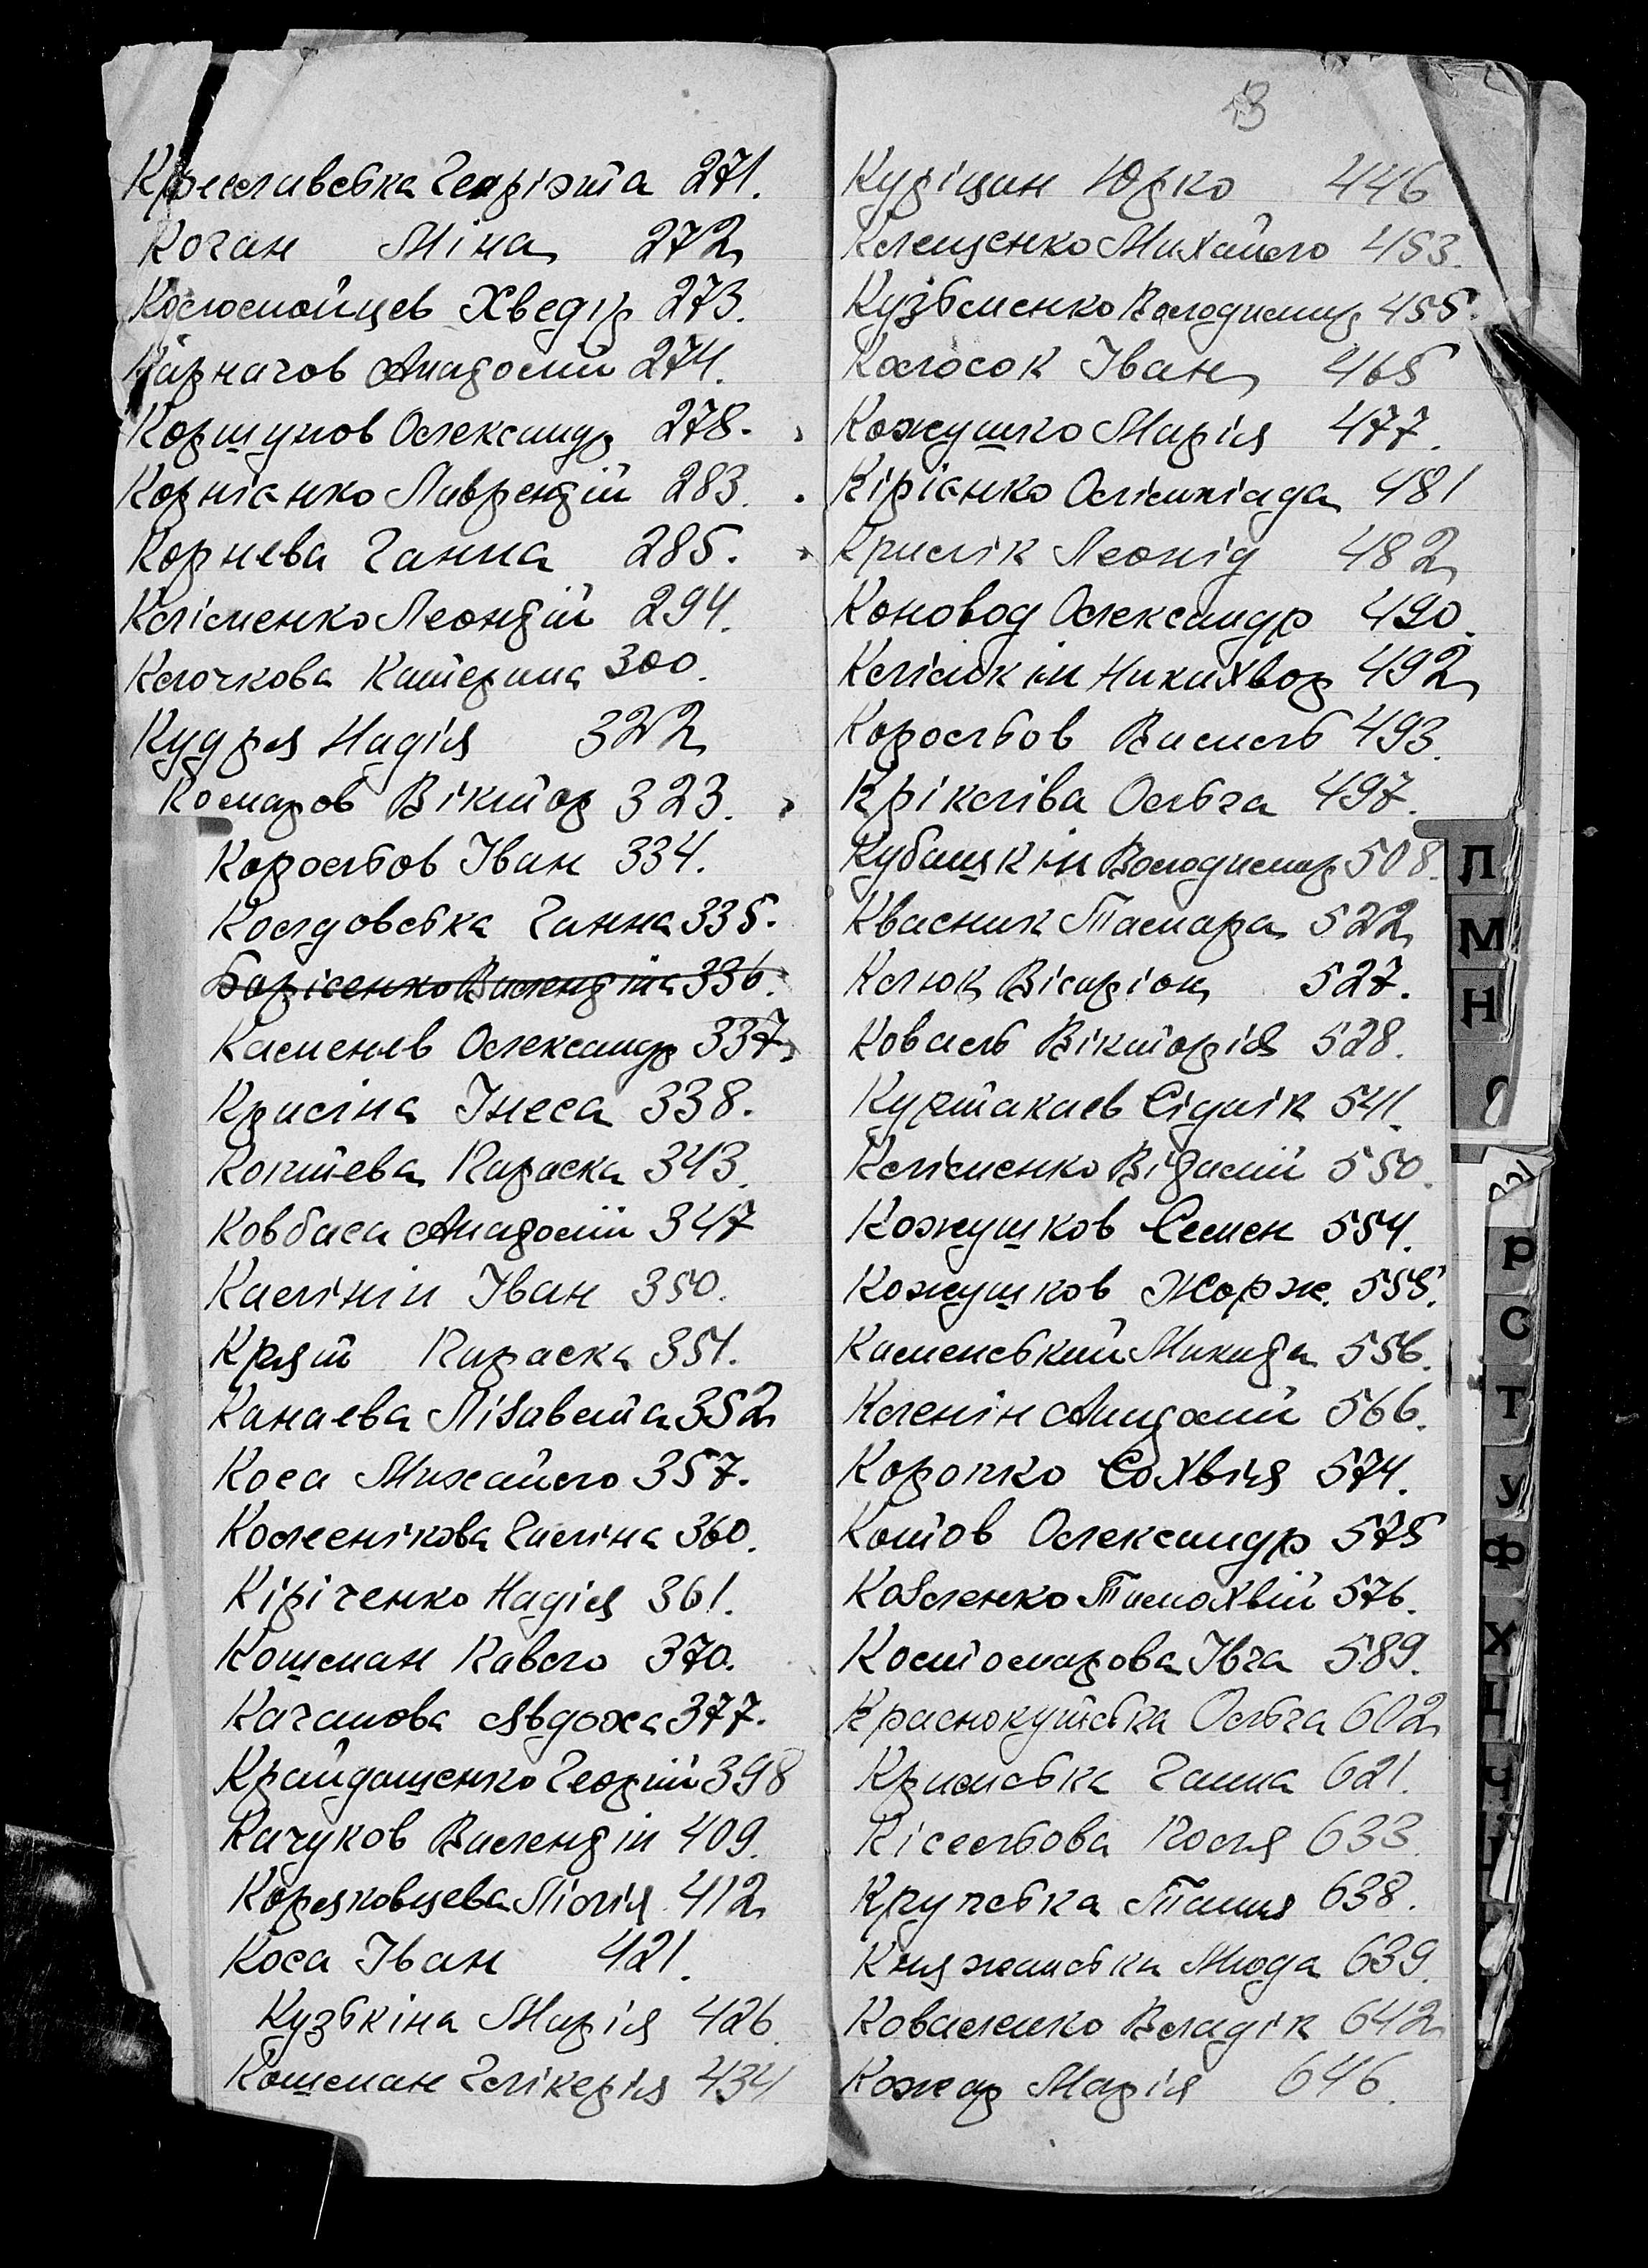 Креславська Генріэта 271.
Коган Міна 272
Коломойцев Хведір 273.
Карначов Анатолій 274.
Коршунов Олександр 278.
Корнієнко Лаврентій 283.
Корнєва Ганна 285.
Кліменко Леонтій 294.
Клочкова Катерина 300.
Кудря Надія 322
Комаров Віктор 323.
Корольов Іван 334.
Колдовська Ганна 335.
Борісенко Валентіна 336.
Каменєв Олександр 337
Криліна Інеса 338.
Коптева Параска 343.
Ковбаса Анатолій 347
Калінін Іван 350.
Крят Параска 351.
Канаева Лізавета 352
Коса Михайло 357.
Колеснікова Галіна 360.
Кіріченко Надія 361.
Кошман Павло 370.
Качанова Явдоха 377.
Крайдашенко Георгій 398
Качуков Валентін 409.
Коряковцева Лідія 412
Коса Іван 421.
Кузькіна Марія 426.
Кошман Глікерія 434
13
Куріцин Юрко 446
Клещенко Михайло 453.
Кузьменко Володимир 455.
Колосок Іван 465
Кожушко Марія 477.
Кірієнко Олімпіада 481
Крилік Леонід 482
Коновод Олександр 490.
Клімкін Никихвор 492
Корольов Василь 493.
Крікліва Ольга 497.
Кубашкін Володимир 508.
Квасник Тамара 522
Клюк Вісаріон 527.
Коваль Вікторія 528.
Куртакаєв Сідлік 541.
Кліменко Віталій 550.
Кожушков Семен 554.
Кожушков Жорж. 555.
Каменський Микита 556.
Кленін Анатолій 566.
Коропко Сохвія 574.
Котов Олександр 575
Козленко Тимохвій 576.
Костомарова Івга 589.
Краснокутська Ольга 602
Крижська Ганна 621.
Кісельова Поля 633.
Крупська Таня 638.
Княжанська Люда 639.
Коваленко Владік 642
Кожар Марія 646.
Л
М
Н
Р
С
Т
У
Ф
Х
Ц
Ч